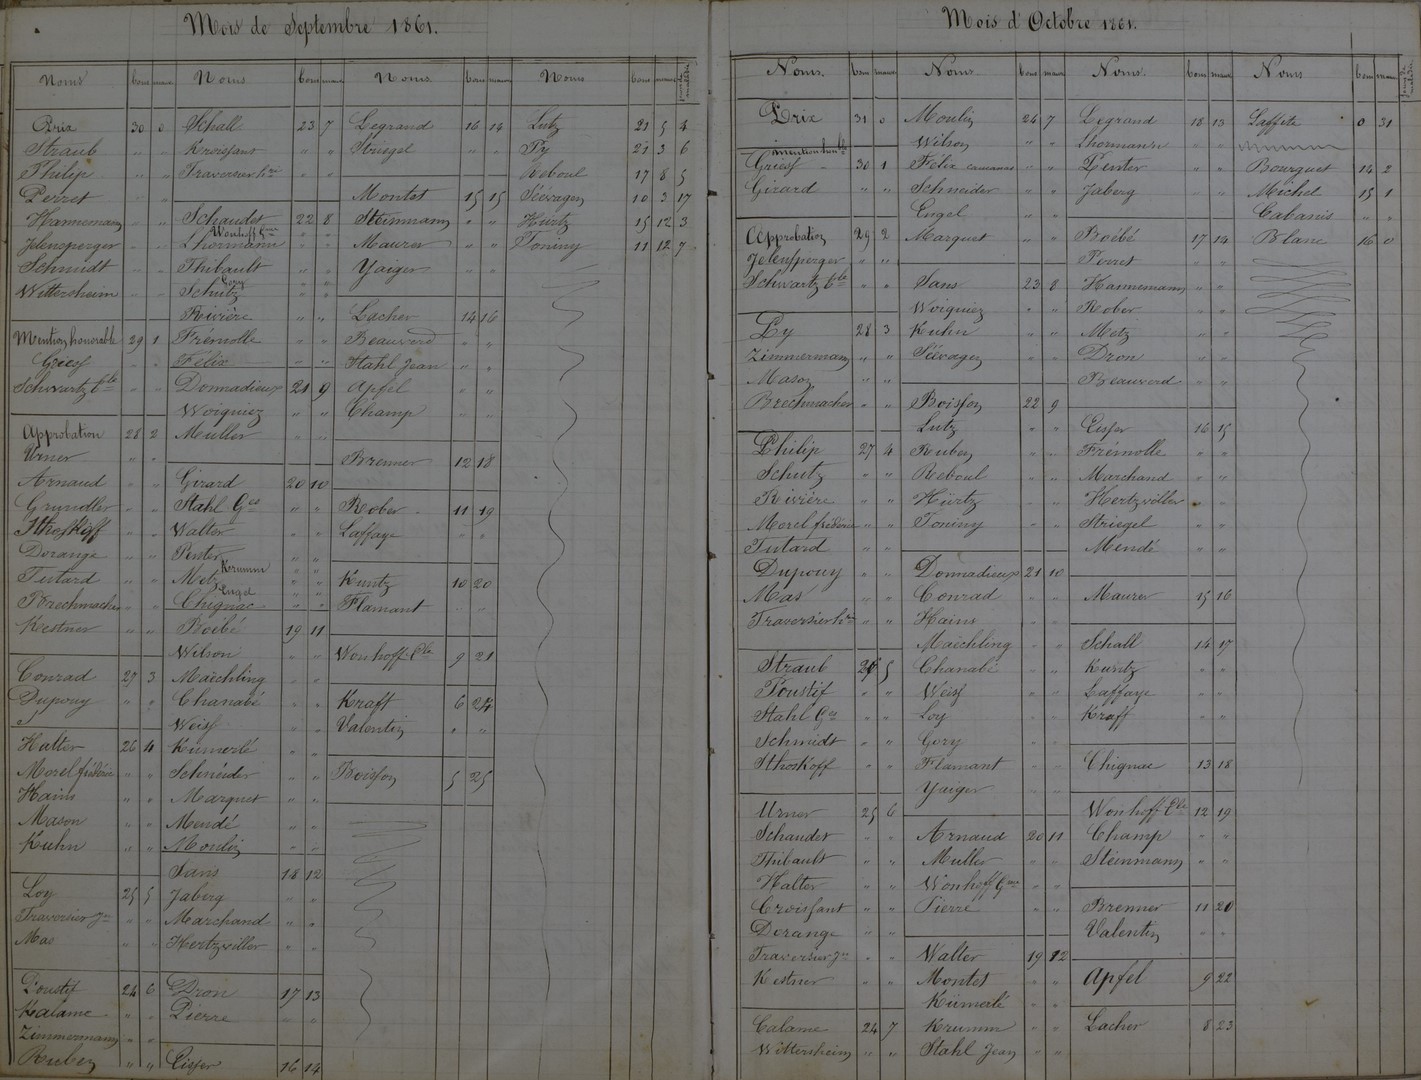 Mois de Septembre 1861.
Noms bons mauv
Prix 30 0
Straub " "
Philip " "
Perret " "
Hannemann " "
Jelensperger " "
Schmidt " "
Wittersheim " "
Mention honorable 29 1
Griess " "
Schwartz " "
Approbation 28 2
Urner " "
Arnaud " "
Grundler " "
Sthoskoff " "
Dorange " "
Tutard " "
Brechmacher " "
Kestner " "
Conrad 27 3
Dupouy " "
Halter 26 4
Morel frédéric " "
Hains " "
Mason " "
Kuhn " "
Loy 25 5
Traversier Jne " "
Mas " "
Poustif 24 6
Kalame " "
Zimmermann " "
Ruben " "
Noms bons mauv
Schall 23 7
Kroissant " "
Traversier hri " "
Schaudet 22 8
Wonhoff Gme " "
Lhormann " "
Thibault " "
Gory " "
Schutz " "
Rivière " "
Frémolle " "
Félix " "
Donnadieux 21 9
Woigniez " "
Muller " "
Girard 20 10
Stahl Gve " "
Walter " "
Penter " "
Krumm " "
Metz " "
Engel " "
Chignac " "
Boëbé 19 11
Wilson " "
Maichling " "
Chanabé " "
Weiss " "
Kumerlé " "
Schneider " "
Marquet " "
Mendé " "
Moulin " "
Sans 18 12
Jaberg " "
Marchand " "
Hertzviller " "
Dron 17 13
Pierre " "
Eisser 16 14
Noms. bons mauv
Legrand 16 14
Striegel " "
Montet 15 15
Steinmann " "
Maurer " "
Yaiger " "
Lacher 14 16
Beauverd " "
Stahl Jean " "
Apfel " "
Champ " "
Brenner 12 18
Rober 11 19
Laffaye " "
Kuntz 10 20
Flamant " "
Wonhoff Cle 9 21
Kraft 6 24
Valentin " "
Boisson 5 25
Noms bons mauv
Lutz 21 5 4
Py 21 3 6
Reboul 17 8 5
Séévagen 10 3 17
Hürtz 15 12 3
Toniny 11 12 7
Mois d'Octobre 1861.
Noms. bons mauv
Prix 31 0
mention honble
Griess " 30 1
Girard " "
Approbation 29 2
Jelensperger " "
Schwartz " "
Py 28 3
Zimmermann " "
Mason " "
Brechmacher " "
Philip 27 4
Schutz " "
Rivière " "
Morel frédéric " "
Tutard " "
Dupouy " "
Mas " "
Traversier hri " "
Straub 26 5
Poustif " "
Stahl Gve " "
Schmidt " "
Sthoskoff " "
Urner 25 6
Schaudet " "
Thibault " "
Halter " "
Croissant " "
Dorange " "
Traversier Jne " "
Kestner " "
Calame 24 7
Wittersheim " "
Noms bons mauv
Moulin 24 7
Wilson " "
Félix " "
Schneider " "
Engel " "
Marquet " "
Sans 23 8
Woigniez " "
Kuhn " "
Séévagen " "
Boisson 22 9
Lutz " "
Ruben " "
Reboul " "
Hürtz " "
Toniny " "
Donnadieux 21 10
Conrad " "
Hains " "
Maichling " "
Chanabé " "
Weiss " "
Loy " "
Gory " "
Flamant " "
Yaiger " "
Arnaud 20 11
Muller " "
Wonhoff Gme " "
Pierre " "
Walter 19 12
Montet " "
Kümerlé " "
Krumm " "
Stahl Jean " "
Noms. bons mauv
Legrand 18 13
Lhormann " "
Penter " "
Jaberg " "
Boëbé 17 14
Perret " "
Hannemann " "
Rober " "
Metz " "
Dron " "
Beauverd " "
Eisser 16 15
Frémolle " "
Marchand " "
Hertzviller " "
Striegel " "
Mendé " "
Maurer 15 16
Schall 14 17
Kuntz " "
Laffaye " "
Kraff " "
Chignac 13 18
Wonhoff Cle 12 19
Champ " "
Steinmann " "
Brenner 11 20
Valentin " "
Apfel 9 22
Lacher 8 23
Noms bons mauv
Laffite 0 31
Bourguet 14 2
Michel 15 1
Cabanis " "
Blanc 16 0